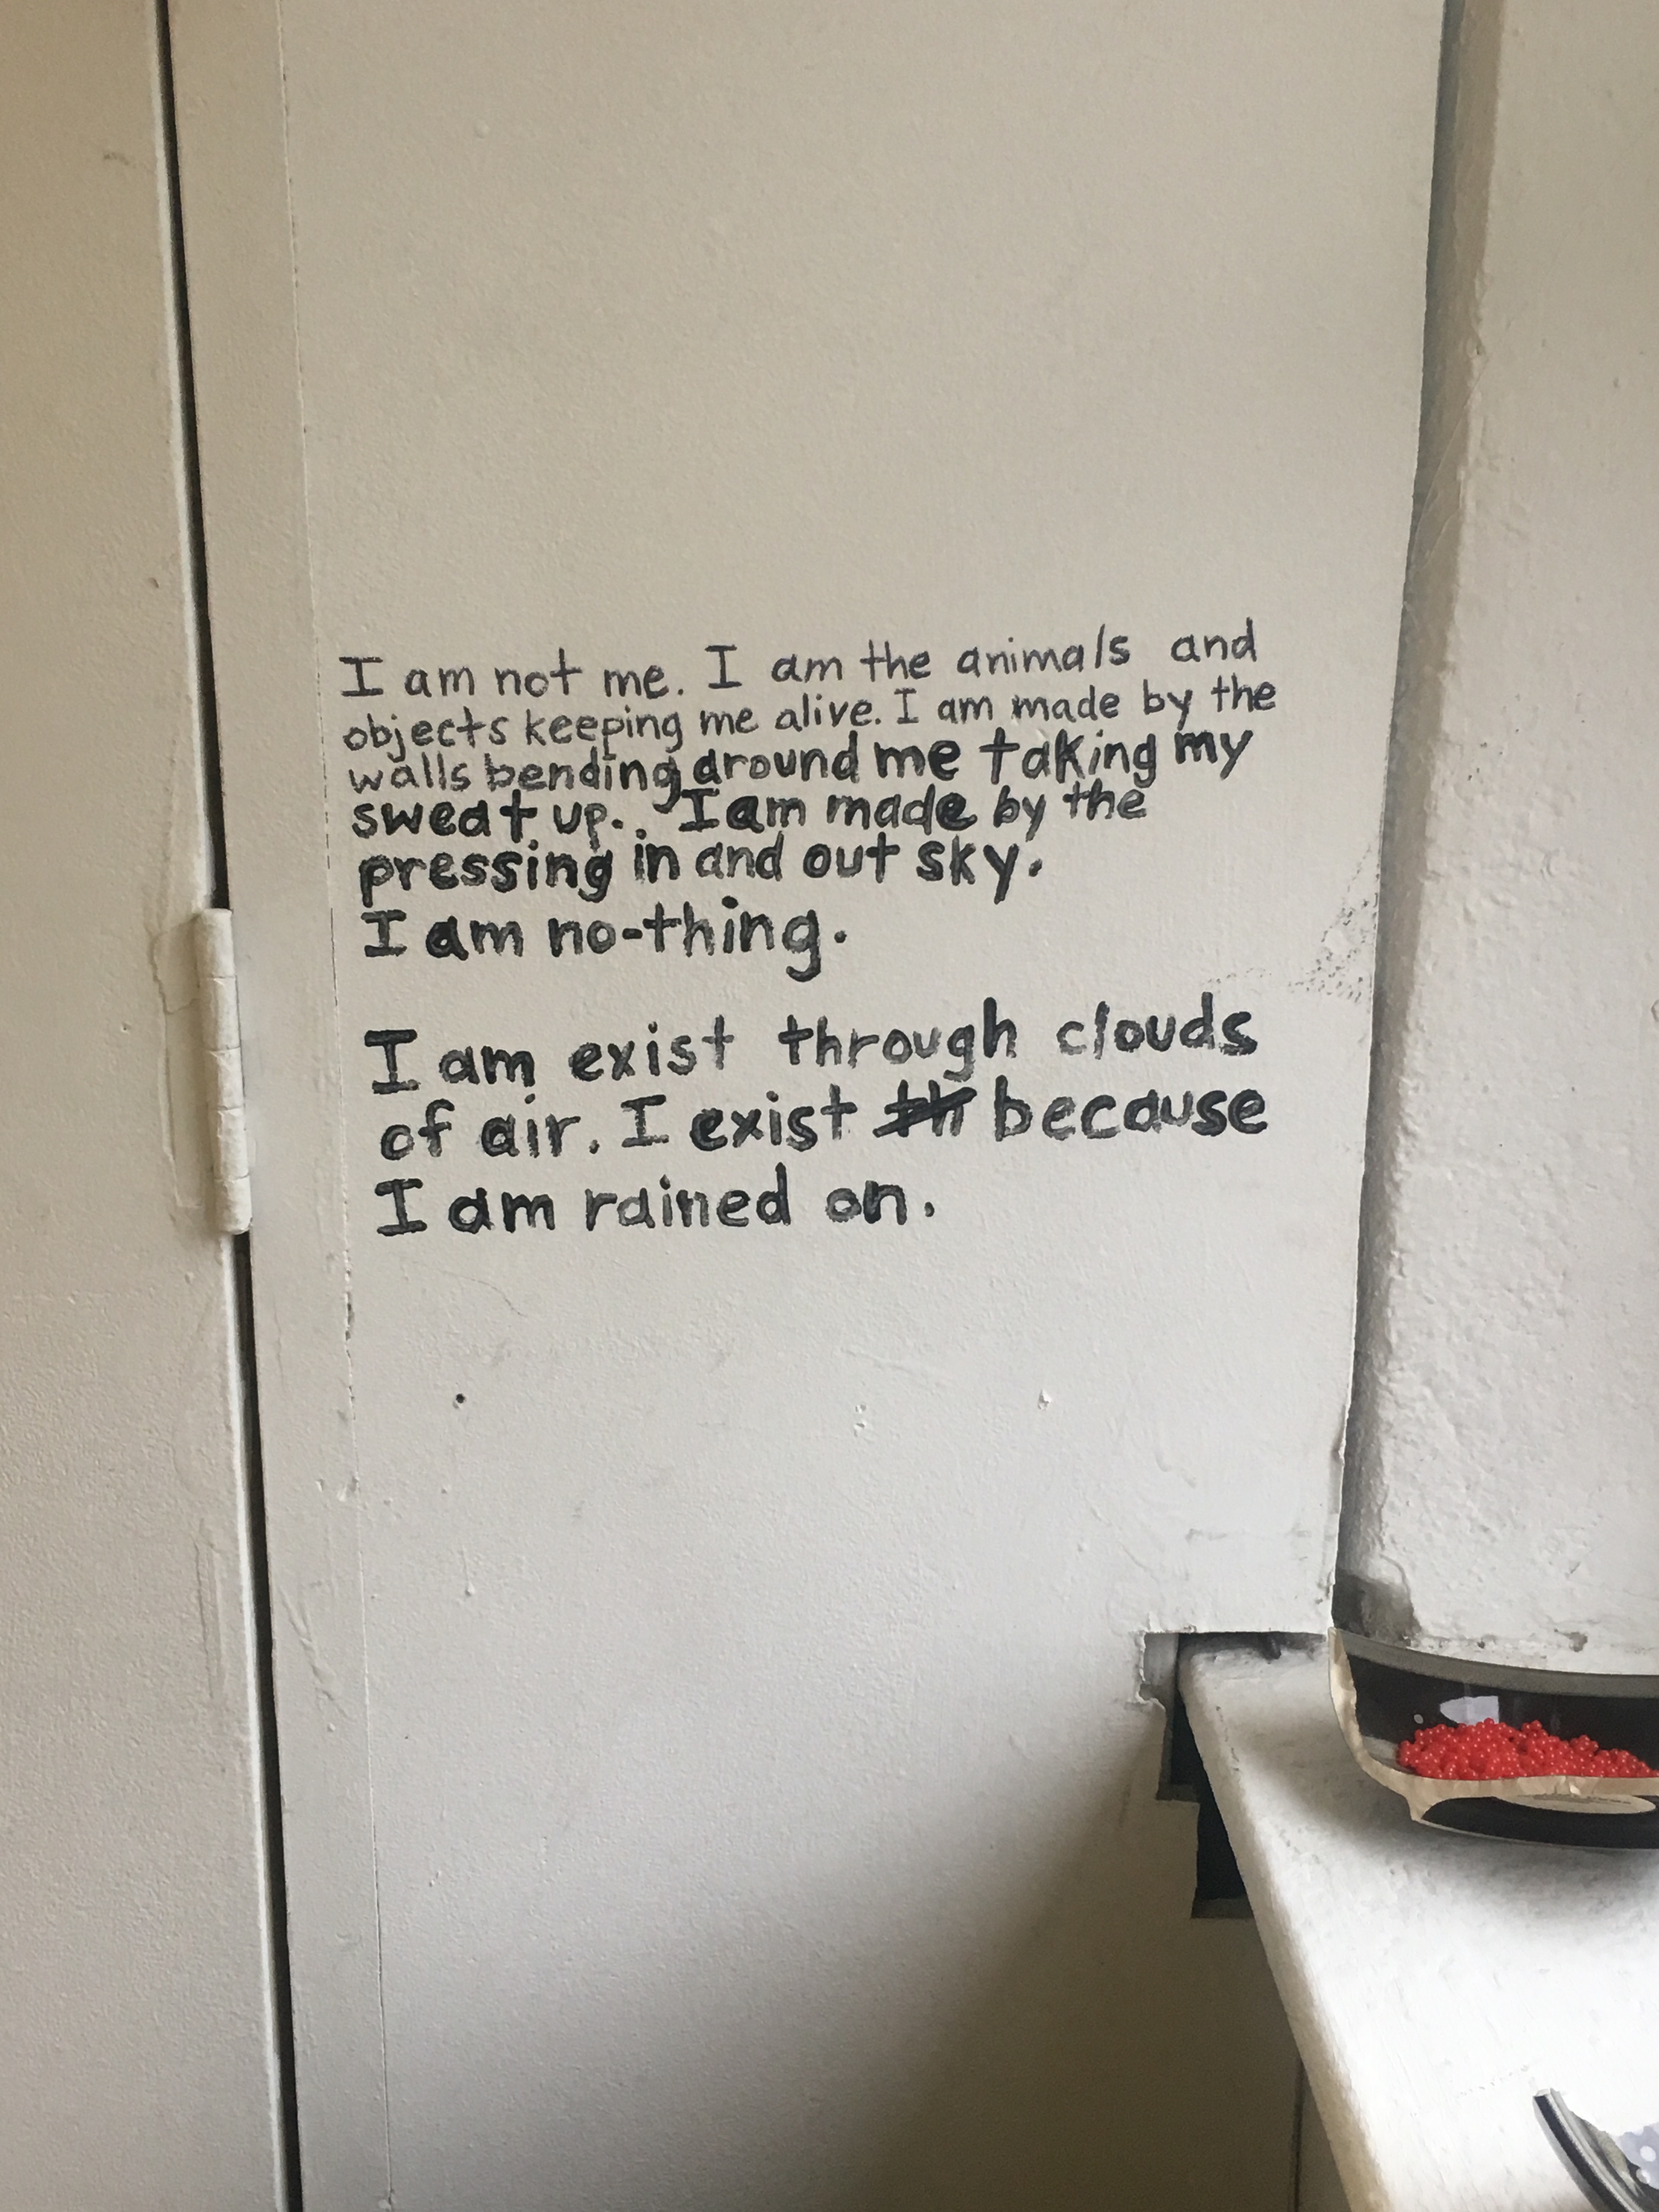 I am not me. I am the animals and
objects keeping me alive. I am made by the
walls bending around me taking my
sweat up. I am made by the
pressing in and out sky.
I am no-thing.
I am exist through clouds
of air. I exist th because
I am rained on.